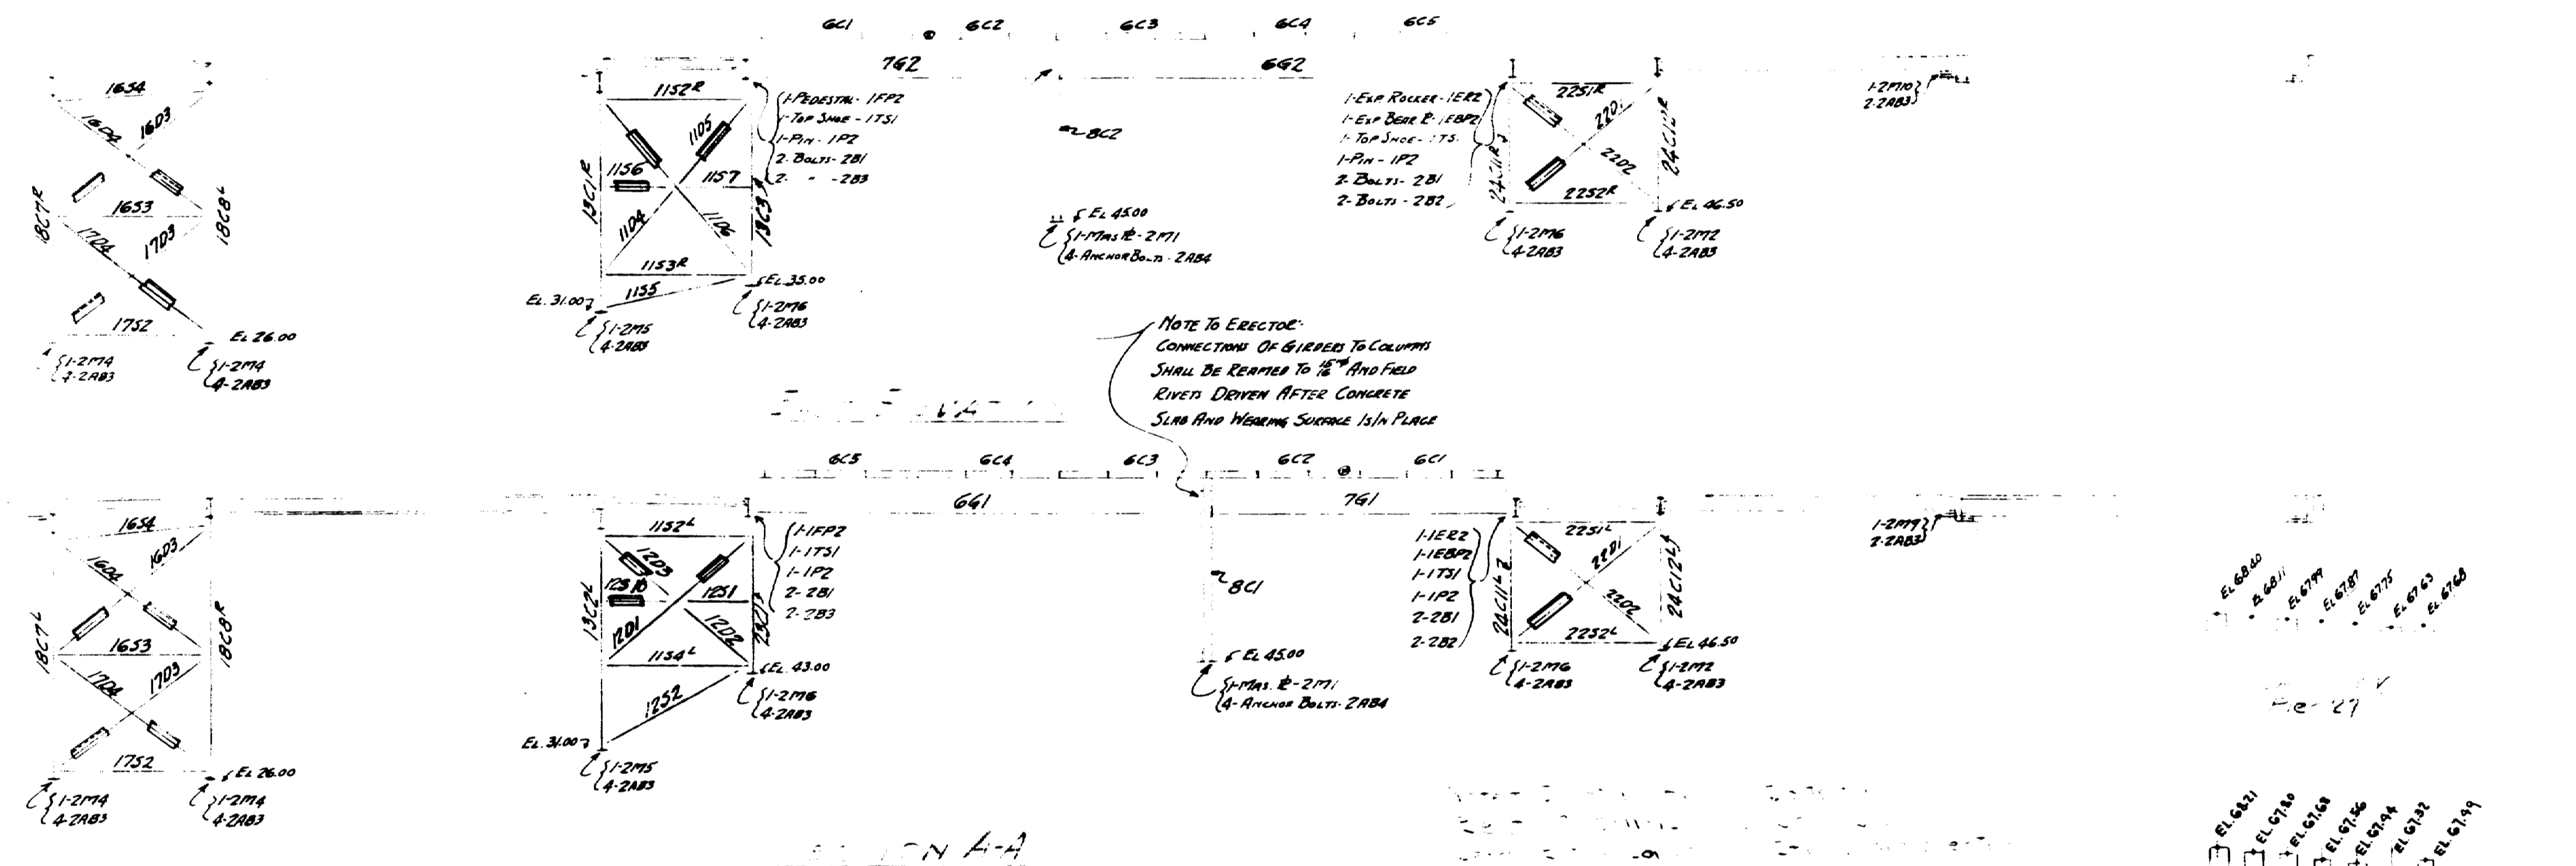 6C1 6C2 6C3 6C4 6C5
7G2 6G2
16S4
16D4 16D3
18C7R 16S3 18C8L
17D4 17D3
17S2
EL 26.00
1-2M4
4-2AB3
1-2M4
4-2AB3
11S2R
11D5
11S6 11S7
13C1R 13C3
11D4 11D6
11S3R
11S5
EL. 31.00
EL. 35.00
1-2M5
4-2AB3
1-2M6
4-2AB3
1-PEDESTAL-1FP2
1-TOP SHOE-1TS1
1-PIN-1P2
2-BOLTS-2B1
2- " -2B3
8C2
EL 45.00
1-MAS PL-2M1
4-ANCHOR BOLTS-2AB4
1-EXP ROCKER-1ER2
1-EXP BEAR PL-1EBP2
1-TOP SHOE-1TS1
1-PIN-1P2
2-BOLTS-2B1
2-BOLTS-2B2
22S1R
22D1
22D2
24C11R 24C12R
22S2R
EL 46.50
1-2M6
4-2AB3
1-2M2
4-2AB3
1-2M10
2-2AB3
NOTE TO ERECTOR:
CONNECTIONS OF GIRDERS TO COLUMNS
SHALL BE REAMED TO 15/16"φ AND FIELD
RIVETS DRIVEN AFTER CONCRETE
SLAB AND WEARING SURFACE IS IN PLACE
6C5 6C4 6C3 6C2 6C1
6G1 7G1
16S4
16D4 16D3
18C7L 16S3 18C8R
17D4 17D3
17S2
EL 26.00
1-2M4
4-2AB3
1-2M4
4-2AB3
11S2L
12D3
12S1
13C2L
12D1 12D2
11S4L
12S2
EL. 31.00
EL. 43.00
1-2M5
4-2AB3
1-2M6
4-2AB3
1-1FP2
1-1TS1
1-1P2
2-2B1
2-2B3
8C1
EL 45.00
1-MAS. PL-2M1
4-ANCHOR BOLTS-2AB4
1-1ER2
1-1EBP2
1-1TS1
1-1P2
2-2B1
2-2B2
22S1L
22D1
22D2
24C11L 24C12L
22S2L
EL 46.50
1-2M6
4-2AB3
1-2M2
4-2AB3
1-2M9
2-2AB3
EL 68.40
EL 68.11
EL 67.99
EL 67.87
EL 67.75
EL 67.63
EL 67.68
Pier 27
A-A
EL. 68.21
EL. 67.80
EL. 67.68
EL. 67.56
EL. 67.44
EL. 67.32
EL. 67.49